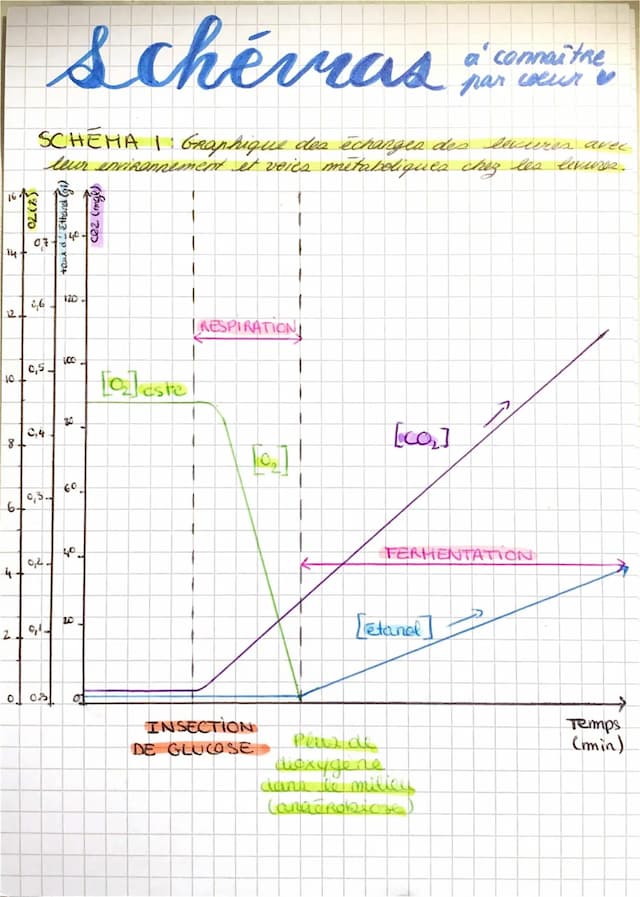 Schémas
à connaître
par coeur
SCHÉMA 1 : Graphique des échanges des levures avec
leur environnement et voies métaboliques chez les levures.
O2 (%)
taux d'Ethanol (g)
CO2 (mg)
16
14
12
10
8
6
4
2
0
0,7
0,6
0,5
0,4
0,3
0,2
0,1
140
120
100
80
60
40
20
0
RESPIRATION
[O2] cste
[O2]
[CO2]
FERMENTATION
[étanol]
INSECTION
DE GLUCOSE
Plus de
dioxygène
dans le milieu
(anaérobiose)
Temps
(min)